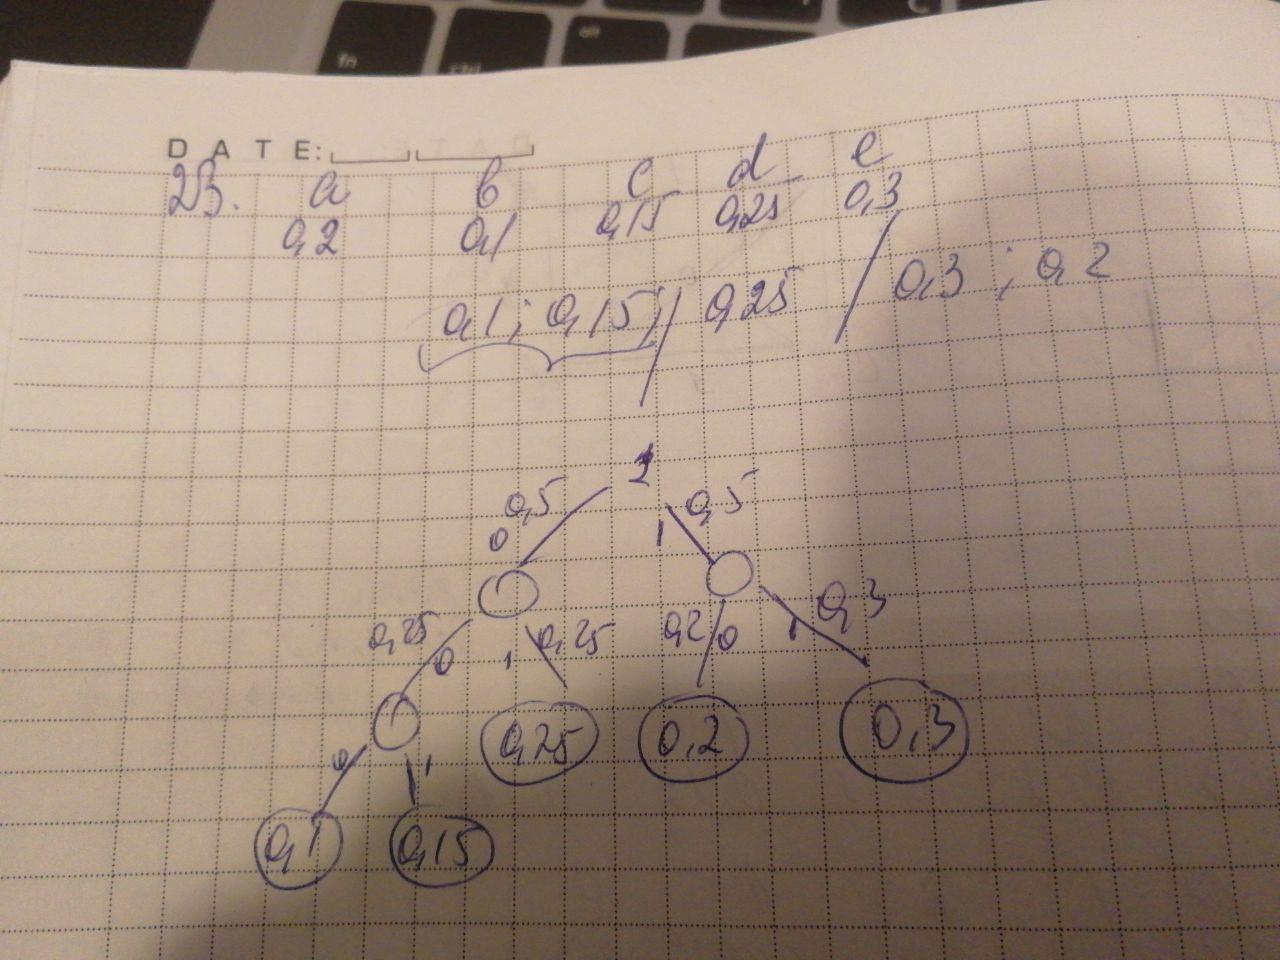 fn ctrl alt
DATE:
2B. a b c d e
0,2 0,1 0,15 0,25 0,3
0,1 ; 0,15 ; / 0,25 / 0,3 ; 0,2
1
0,5 0,5
0 1
0,25 0,25 0,2 0,3
0 1 0 1
0,25 0,2 0,3
0 1
0,1 0,15